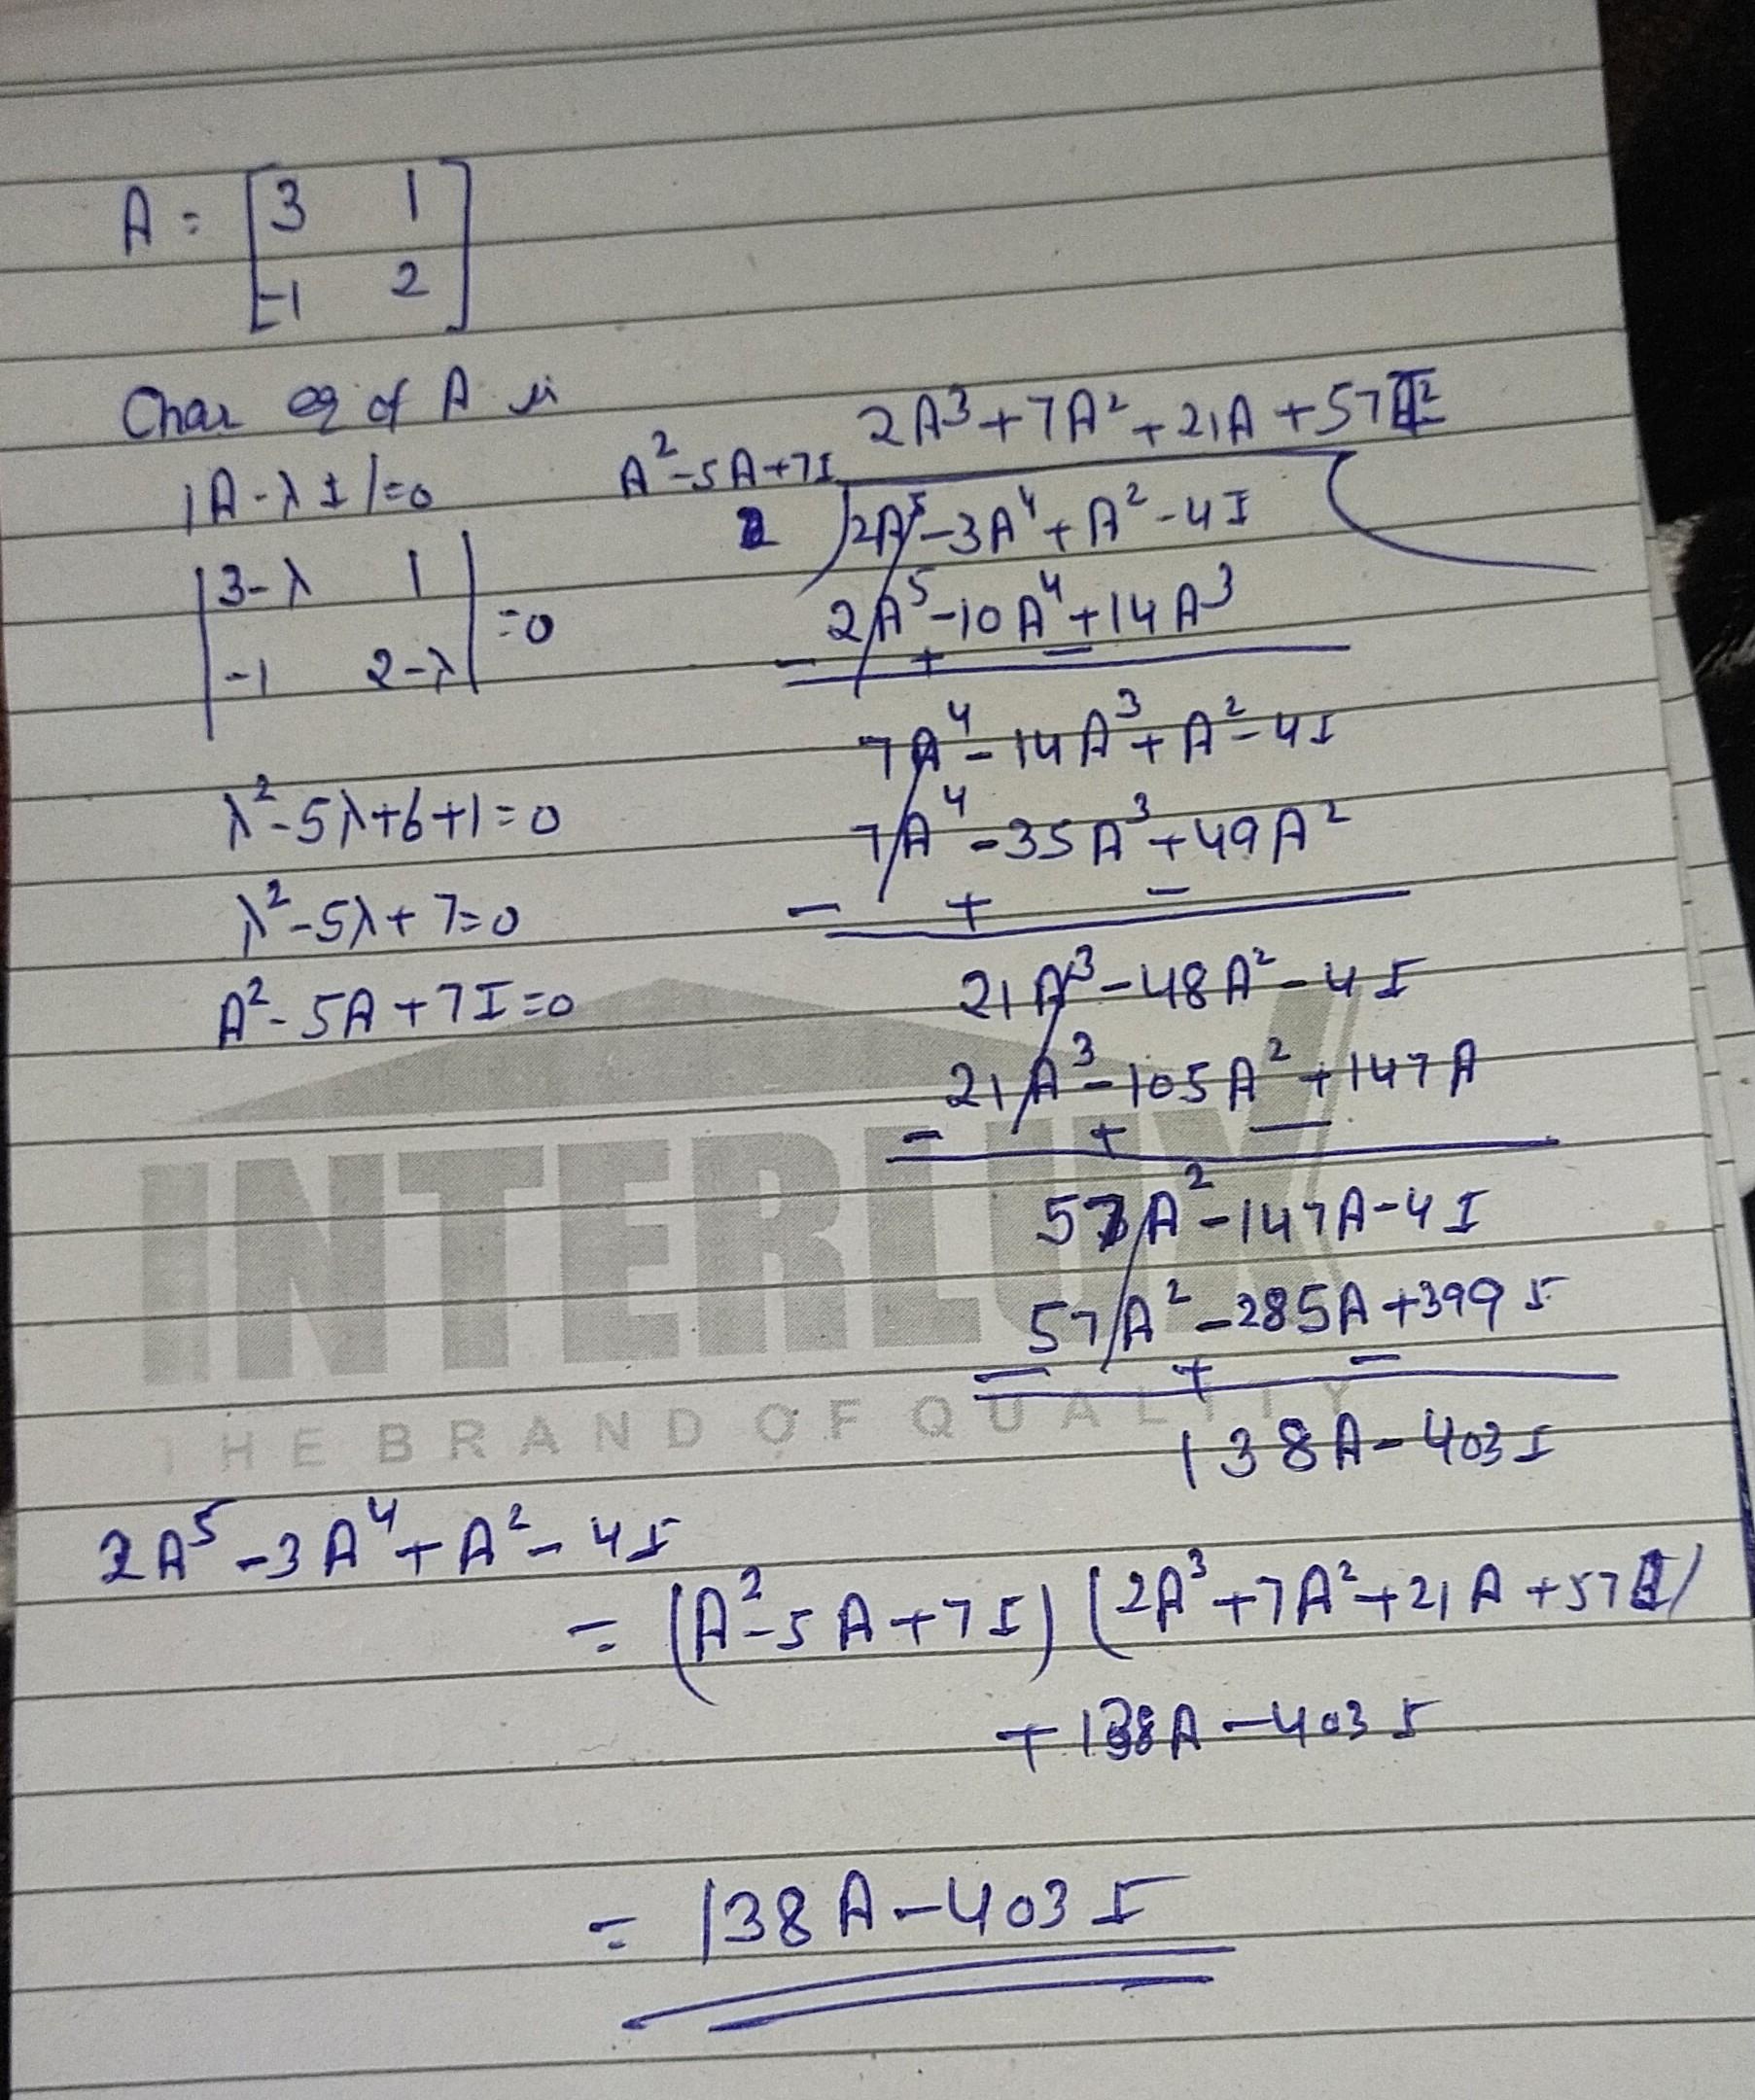 A = [3 1
-1 2]
Char eq of A is
|A-λI|=0
|3-λ 1
-1 2-λ| =0
λ²-5λ+6+1=0
λ²-5λ+7=0
A²-5A+7I=0
2A³+7A²+21A+57I
A²-5A+7I
2A⁵-3A⁴+A²-4I
2A⁵-10A⁴+14A³
- + -
7A⁴-14A³+A²-4I
7A⁴-35A³+49A²
- + -
21A³-48A²-4I
21A³-105A²+147A
- + -
57A²-147A-4I
57A²-285A+399I
- + -
138A-403I
INTERLUX
THE BRAND OF QUALITY
2A⁵-3A⁴+A²-4I
= (A²-5A+7I) (2A³+7A²+21A+57I)
+138A-403I
= 138A-403I